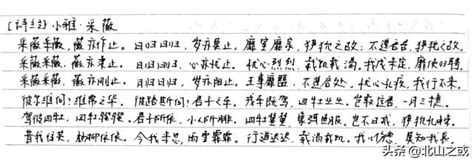 [诗经] 小雅·采薇
采薇采薇,薇亦作止。曰归曰归,岁亦莫止。靡室靡家,猃狁之故;不遑启居,猃狁之故。
采薇采薇,薇亦柔止。曰归曰归,心亦忧止。忧心烈烈,载饥载渴。我戍未定,靡使归聘。
采薇采薇,薇亦刚止。曰归曰归,岁亦阳止。王事靡盬,不遑启处。忧心孔疚,我行不来。
彼尔维何?维常之华。彼路斯何?君子之车。戎车既驾,四牡业业。岂敢定居,一月三捷。
驾彼四牡,四牡骙骙。君子所依,小人所腓。四牡翼翼,象弭鱼服。岂不日戒,猃狁孔棘。
昔我往矣,杨柳依依。今我来思,雨雪霏霏。行道迟迟,载渴载饥。我心伤悲,莫知我哀。
头条 @北山之或